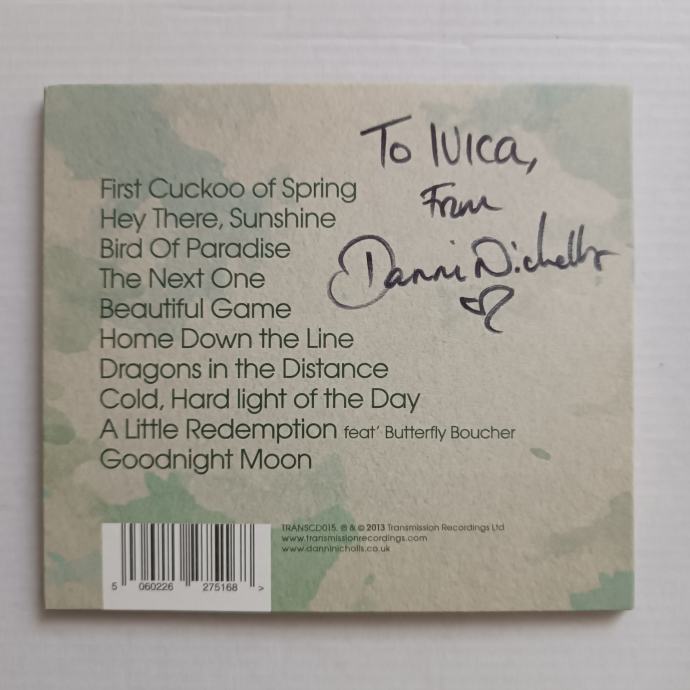 To IVICA,
From
Danni Nicholls
First Cuckoo of Spring
Hey There, Sunshine
Bird Of Paradise
The Next One
Beautiful Game
Home Down the Line
Dragons in the Distance
Cold, Hard light of the Day
A Little Redemption feat' Butterfly Boucher
Goodnight Moon
TRANSCD015. ℗ & © 2013 Transmission Recordings Ltd
www.transmissionrecordings.com
www.danninicholls.co.uk
5 060226 275168 >